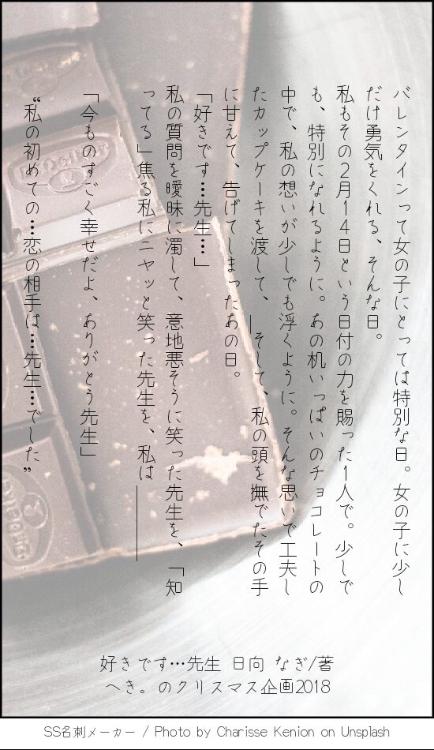 バレンタインって女の子にとっては特別な日。女の子に少し
だけ勇気をくれる、そんな日。
私もその2月14日という日付の力を賜った1人で。少しで
も、特別になれるように。あの机いっぱいのチョコレートの
中で、私の想いが少しでも浮くように。そんな思いで工夫し
たカップケーキを渡して、―そして、私の頭を撫でたその手
に甘えて、告げてしまったあの日。
「好きです…先生…」
私の質問を曖昧に濁して、意地悪そうに笑った先生を、「知
ってる」焦る私にニヤッと笑った先生を、私は―――
「今ものすごく幸せだよ、ありがとう先生」
“私の初めての…恋の相手は…先生…でした”
好きです…先生 日向 なぎ/著
へき。のクリスマス企画2018
SS名刺メーカー / Photo by Charisse Kenion on Unsplash